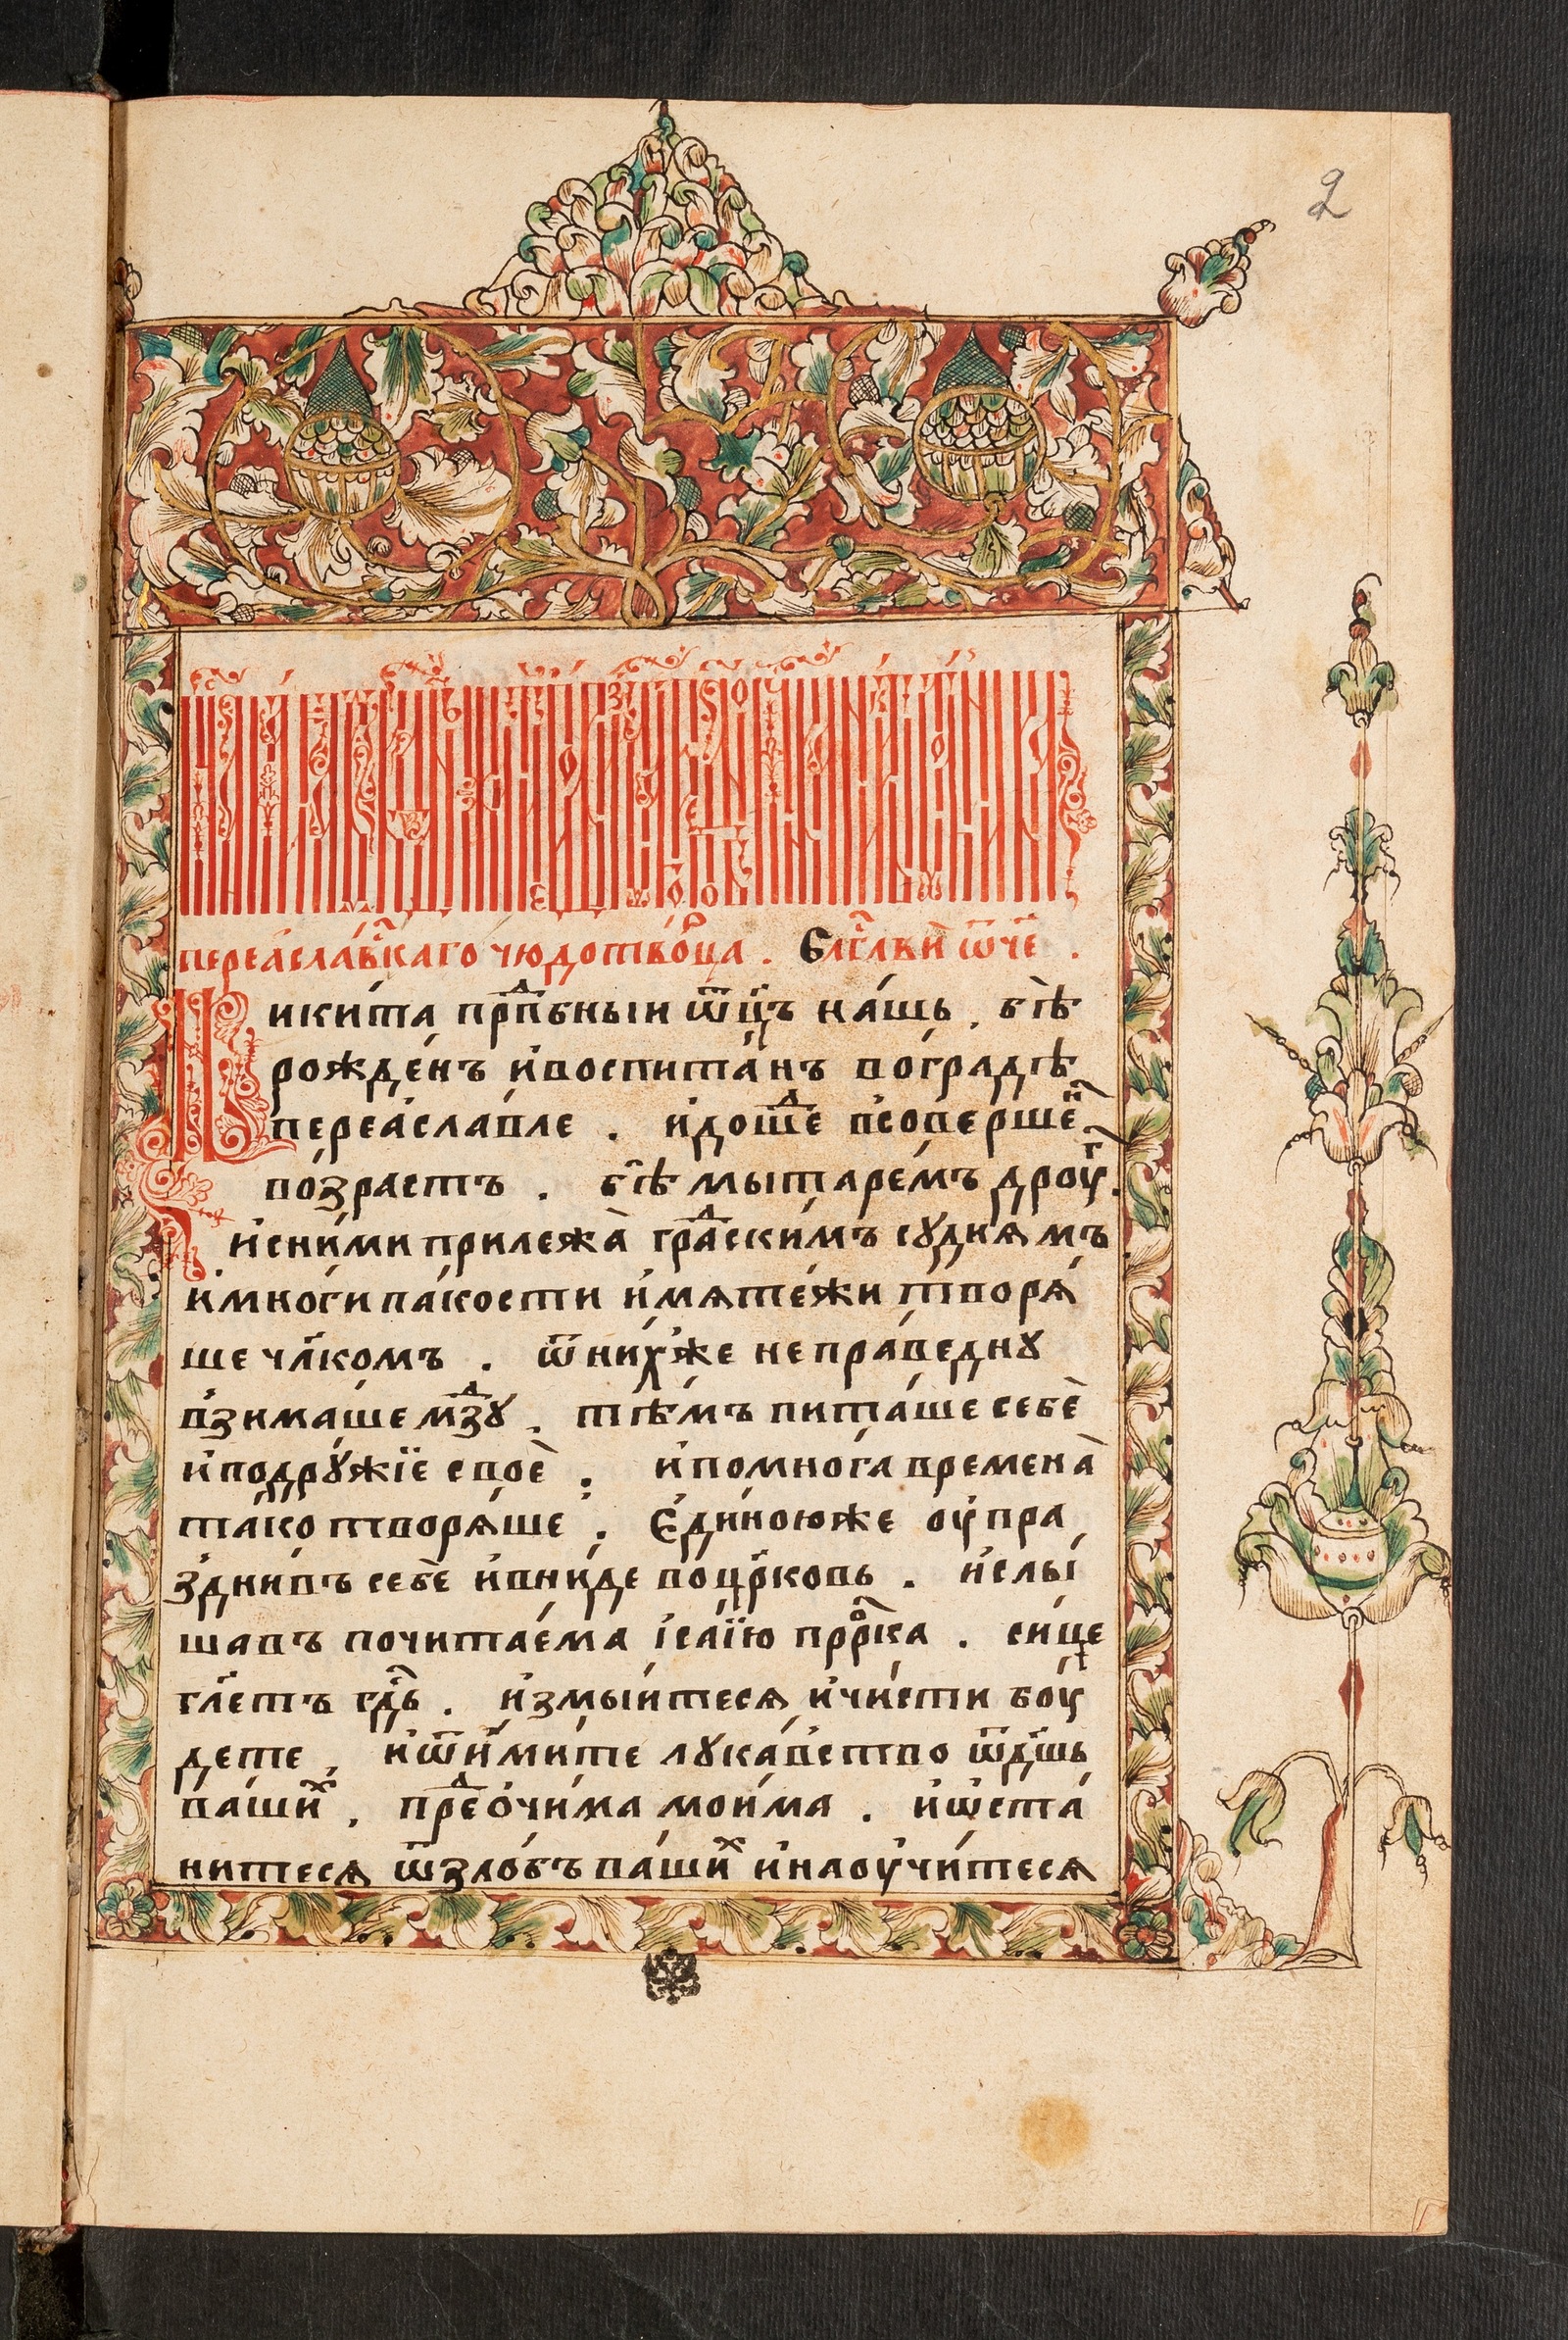 2
переѧславⷭ҇каго чюдотво́рⷰ҇а . Блгⷭ҇лви ѿч҃е .
Никита прпⷣбныи ѿц҃ъ на́шъ . бѣ̀
рожде́нъ и҆воспита́нъ воградѣ
переа́славле . и҆дошеⷣ в̾соверше́нⷩ҇
во́зрастъ . бѣ̀ мытаре́мъ дроуⷢ҇.
и҆сни́ми прилежа̀ граⷣски́мъ сꙋдиѧмъ
и҆мно́ги па́кости и҆мѧте́жи творѧ́
ше чл҃комъ . ѿни́хже непра́веднꙋ
в̾зима́ше мзⷣꙋ . тѣ́мъ пита́ше себѐ
и҆подрꙋ́жїе своѐ . и҆помно́га времена̀
та́ко творѧ́ше . Е҆ди́ною́же оу҆пра
здни́въ себѐ и҆вни́де воцр҃ковь . и҆слы́
шавъ почита́ема і҆са́їю прⷪ҇рка . си́це
гл҃етъ гдⷭ҇ь . и҆змы́итесѧ и҆чи́сти боу́
дете , и҆ѿи҆ми́те лꙋка́вство ѿдш҃ь
ва́шиⷯ , преⷣо́чима мои́ма . и҆ѡ҆ста́
нитесѧ ѿзло́бъ ва́шиⷯ и҆наоу҆чи́тесѧ